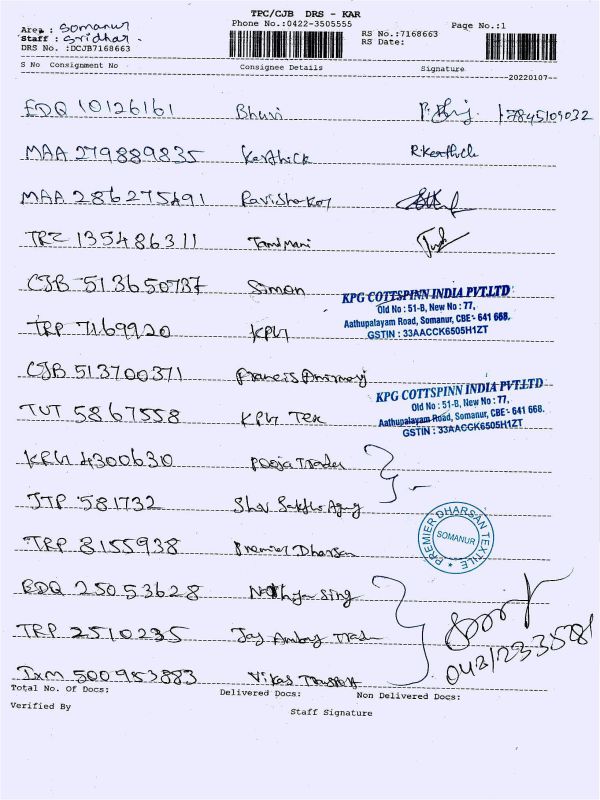 TPC/CJB DRS - KAR
Area : Somanur
Phone No.:0422-3505555
Page No.:1
Staff : Sridhar.
RS No.:7168663
DRS No. :DCJB7168663
RS Date:
S No Consignment No Consignee Details Signature
20220107
EDQ 10126161 Bhuvi 7845109032
MAA 279889835 Karthick R.Karthick
MAA 286275491
TRZ 135486311 Tamilmani
CJB 513650787 Simon
KPG COTTSPINN INDIA PVT.LTD
Old No : 51-B, New No : 77,
Aathupalayam Road, Somanur, CBE- 641 668.
GSTIN : 33AACCK6505H1ZT
TRP 7169920 KPG
CJB 513700371 Francis
KPG COTTSPINN INDIA PVT.LTD
Old No : 51-B, New No : 77,
Aathupalayam Road, Somanur, CBE- 641 668.
GSTIN : 33AACCK6505H1ZT
TUT 5867558 KPG Tex
KPG 4300630 Pooja Trader
JTP 581732
TRP 8155938 Premier Dharsan
PREMIER DHARSAN TEXTILE
SOMANUR
EDQ 25053628 Sing
TRP 2510235 Jay Trade
IXM 500953883 Vikas
Total No. Of Docs: Delivered Docs: Non Delivered Docs:
Verified By
Staff Signature